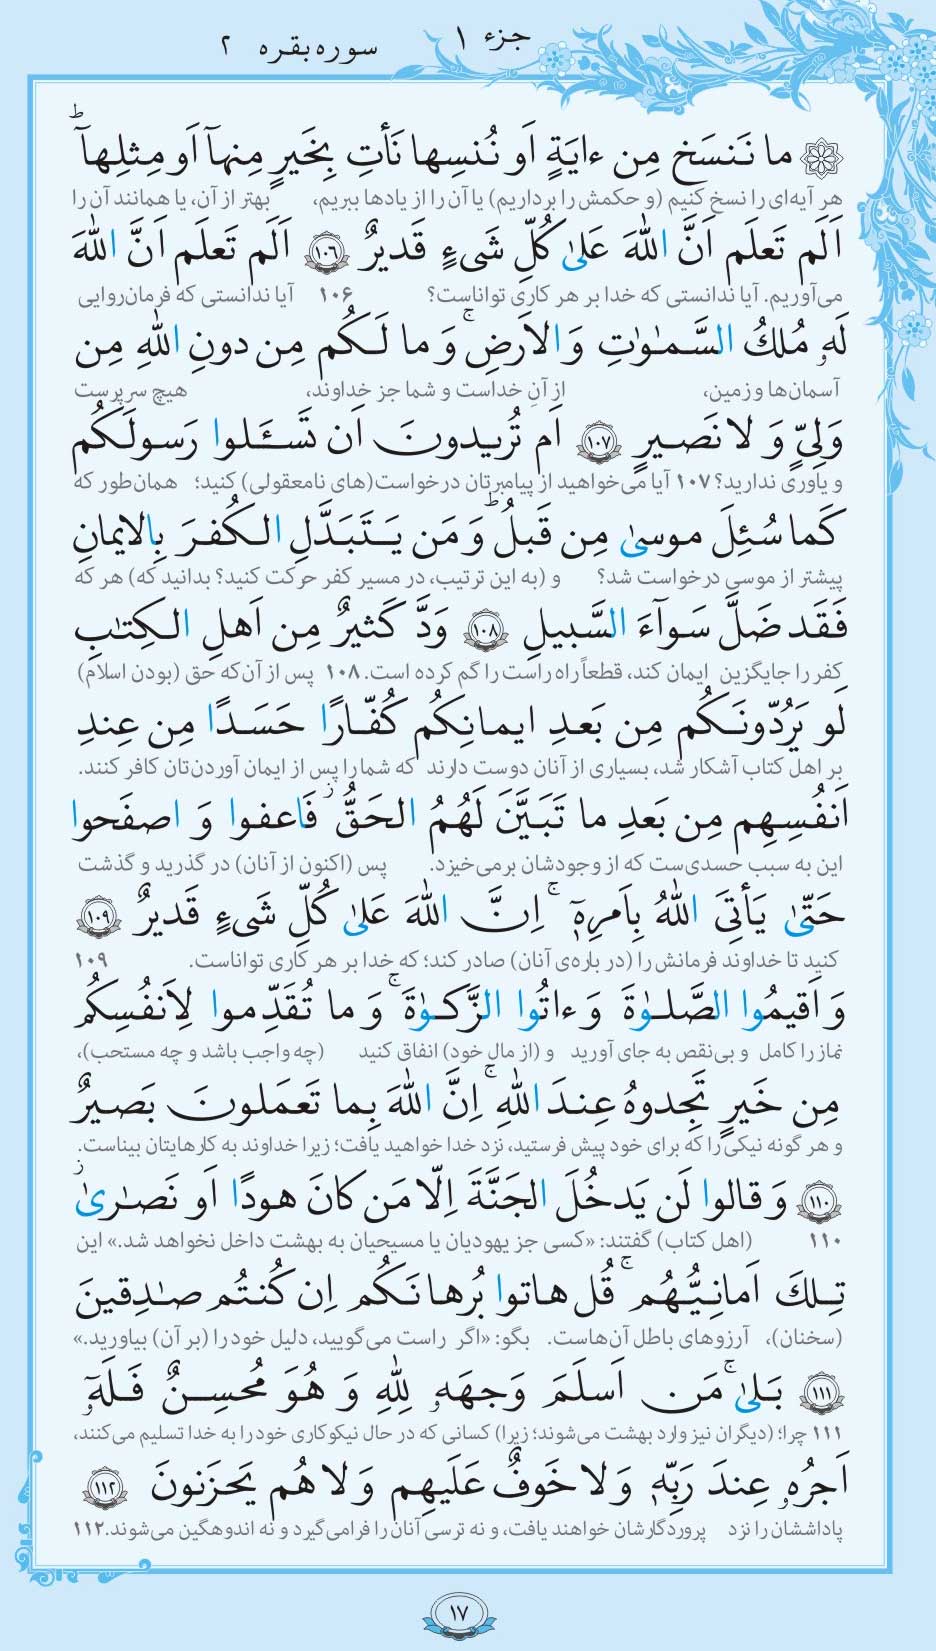 جزء ۱
سوره بقره ۲
ما نَنسَخ مِن ءایَةٍ اَو نُنسِها نَأتِ بِخَیرٍ مِنهآ اَو مِثلِهآ ۗ
هر آیه‌ای را نسخ کنیم (و حکمش را برداریم) یا آن را از یادها ببریم، بهتر از آن، یا همانند آن را
اَلَم تَعلَم اَنَّ اللّٰهَ عَلیٰ کُلِّ شَیءٍ قَدیرٌ ﴿۱۰۶﴾ اَلَم تَعلَم اَنَّ اللّٰهَ
می‌آوریم. آیا ندانستی که خدا بر هر کاری تواناست؟ ۱۰۶ آیا ندانستی که فرمان‌روایی
لَهٗ مُلکُ السَّمٰوٰتِ وَ الاَرضِ ۚ وَ ما لَکُم مِن دونِ اللّٰهِ مِن
آسمان‌ها و زمین، از آنِ خداست و شما جز خداوند، هیچ سرپرست
وَلِیٍّ وَ لا نَصیرٍ ﴿۱۰۷﴾ اَم تُریدونَ اَن تَسـَٔلوا رَسولَکُم
و یاوری ندارید؟ ۱۰۷ آیا می‌خواهید از پیامبرتان درخواست(های نامعقولی) کنید؛ همان‌طور که
کَما سُئِلَ موسیٰ مِن قَبلُ ۗ وَ مَن یَتَبَدَّلِ الکُفرَ بِالایمانِ
پیشتر از موسی درخواست شد؟ و (به این ترتیب، در مسیر کفر حرکت کنید؟ بدانید که) هر که
فَقَد ضَلَّ سَوآءَ السَّبیلِ ﴿۱۰۸﴾ وَدَّ کَثیرٌ مِن اَهلِ الکِتٰبِ
کفر را جایگزین ایمان کند، قطعاً راه راست را گم کرده است. ۱۰۸ پس از آن‌که حق (بودن اسلام)
لَو یَرُدّونَکُم مِن بَعدِ ایمانِکُم کُفّارًا حَسَدًا مِن عِندِ
بر اهل کتاب آشکار شد، بسیاری از آنان دوست دارند که شما را پس از ایمان آوردن‌تان کافر کنند.
اَنفُسِهِم مِن بَعدِ ما تَبَیَّنَ لَهُمُ الحَقُّ ۖ فَاعفوا وَ اصفَحوا
این به سبب حسدی‌ست که از وجودشان برمی‌خیزد. پس (اکنون از آنان) در گذرید و گذشت
حَتّیٰ یَأتِیَ اللّٰهُ بِاَمرِهٖٓ ۚ اِنَّ اللّٰهَ عَلیٰ کُلِّ شَیءٍ قَدیرٌ ﴿۱۰۹﴾
کنید تا خداوند فرمانش را (در باره‌ی آنان) صادر کند؛ که خدا بر هر کاری تواناست. ۱۰۹
وَ اَقیمُوا الصَّلوٰةَ وَ ءاتُوا الزَّکوٰةَ ۚ وَ ما تُقَدِّموا لِاَنفُسِکُم
نماز را کامل و بی‌نقص به جای آورید و (از مال خود) انفاق کنید (چه واجب باشد و چه مستحب)،
مِن خَیرٍ تَجِدوهُ عِندَ اللّٰهِ ۚ اِنَّ اللّٰهَ بِما تَعمَلونَ بَصیرٌ
و هر گونه نیکی را که برای خود پیش فرستید، نزد خدا خواهید یافت؛ زیرا خداوند به کارهایتان بیناست.
﴿۱۱۰﴾ وَ قالوا لَن یَدخُلَ الجَنَّةَ اِلّا مَن کانَ هودًا اَو نَصٰریٰ ۗ
۱۱۰ (اهل کتاب) گفتند: «کسی جز یهودیان یا مسیحیان به بهشت داخل نخواهد شد.» این
تِلکَ اَمانِیُّهُم ۗ قُل هاتوا بُرهانَکُم اِن کُنتُم صٰدِقینَ
(سخنان)، آرزوهای باطل آن‌هاست. بگو: «اگر راست می‌گویید، دلیل خود را (بر آن) بیاورید.»
﴿۱۱۱﴾ بَلیٰ ۚ مَن اَسلَمَ وَجهَهٗ لِلّٰهِ وَ هُوَ مُحسِنٌ فَلَهٗٓ
۱۱۱ چرا؛ (دیگران نیز وارد بهشت می‌شوند؛ زیرا) کسانی که در حال نیکوکاری خود را به خدا تسلیم می‌کنند،
اَجرُهٗ عِندَ رَبِّهٖ وَ لا خَوفٌ عَلَیهِم وَ لا هُم یَحزَنونَ ﴿۱۱۲﴾
پاداششان را نزد پروردگارشان خواهند یافت، و نه ترسی آنان را فرامی‌گیرد و نه اندوهگین می‌شوند. ۱۱۲
۱۷